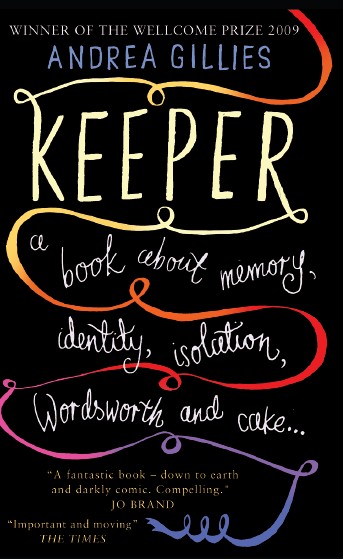 WINNER OF THE WELLCOME PRIZE 2009
ANDREA GILLIES
KEEPER
a
book about memory,
identity, isolation,
Wordsworth and cake...
"A fantastic book – down to earth
and darkly comic. Compelling."
JO BRAND
"Important and moving"
THE TIMES